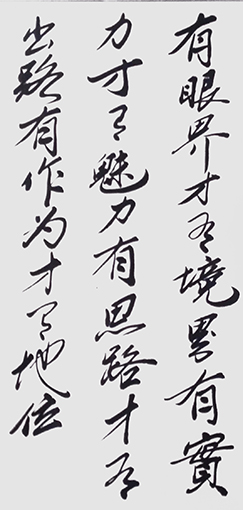 有眼界才有境界有實
力才有魅力有思路才有
出路有作为才有地位